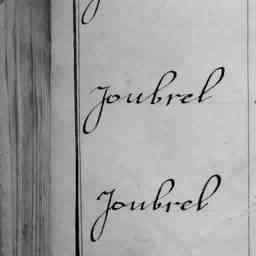 Joubrel
Joubrel